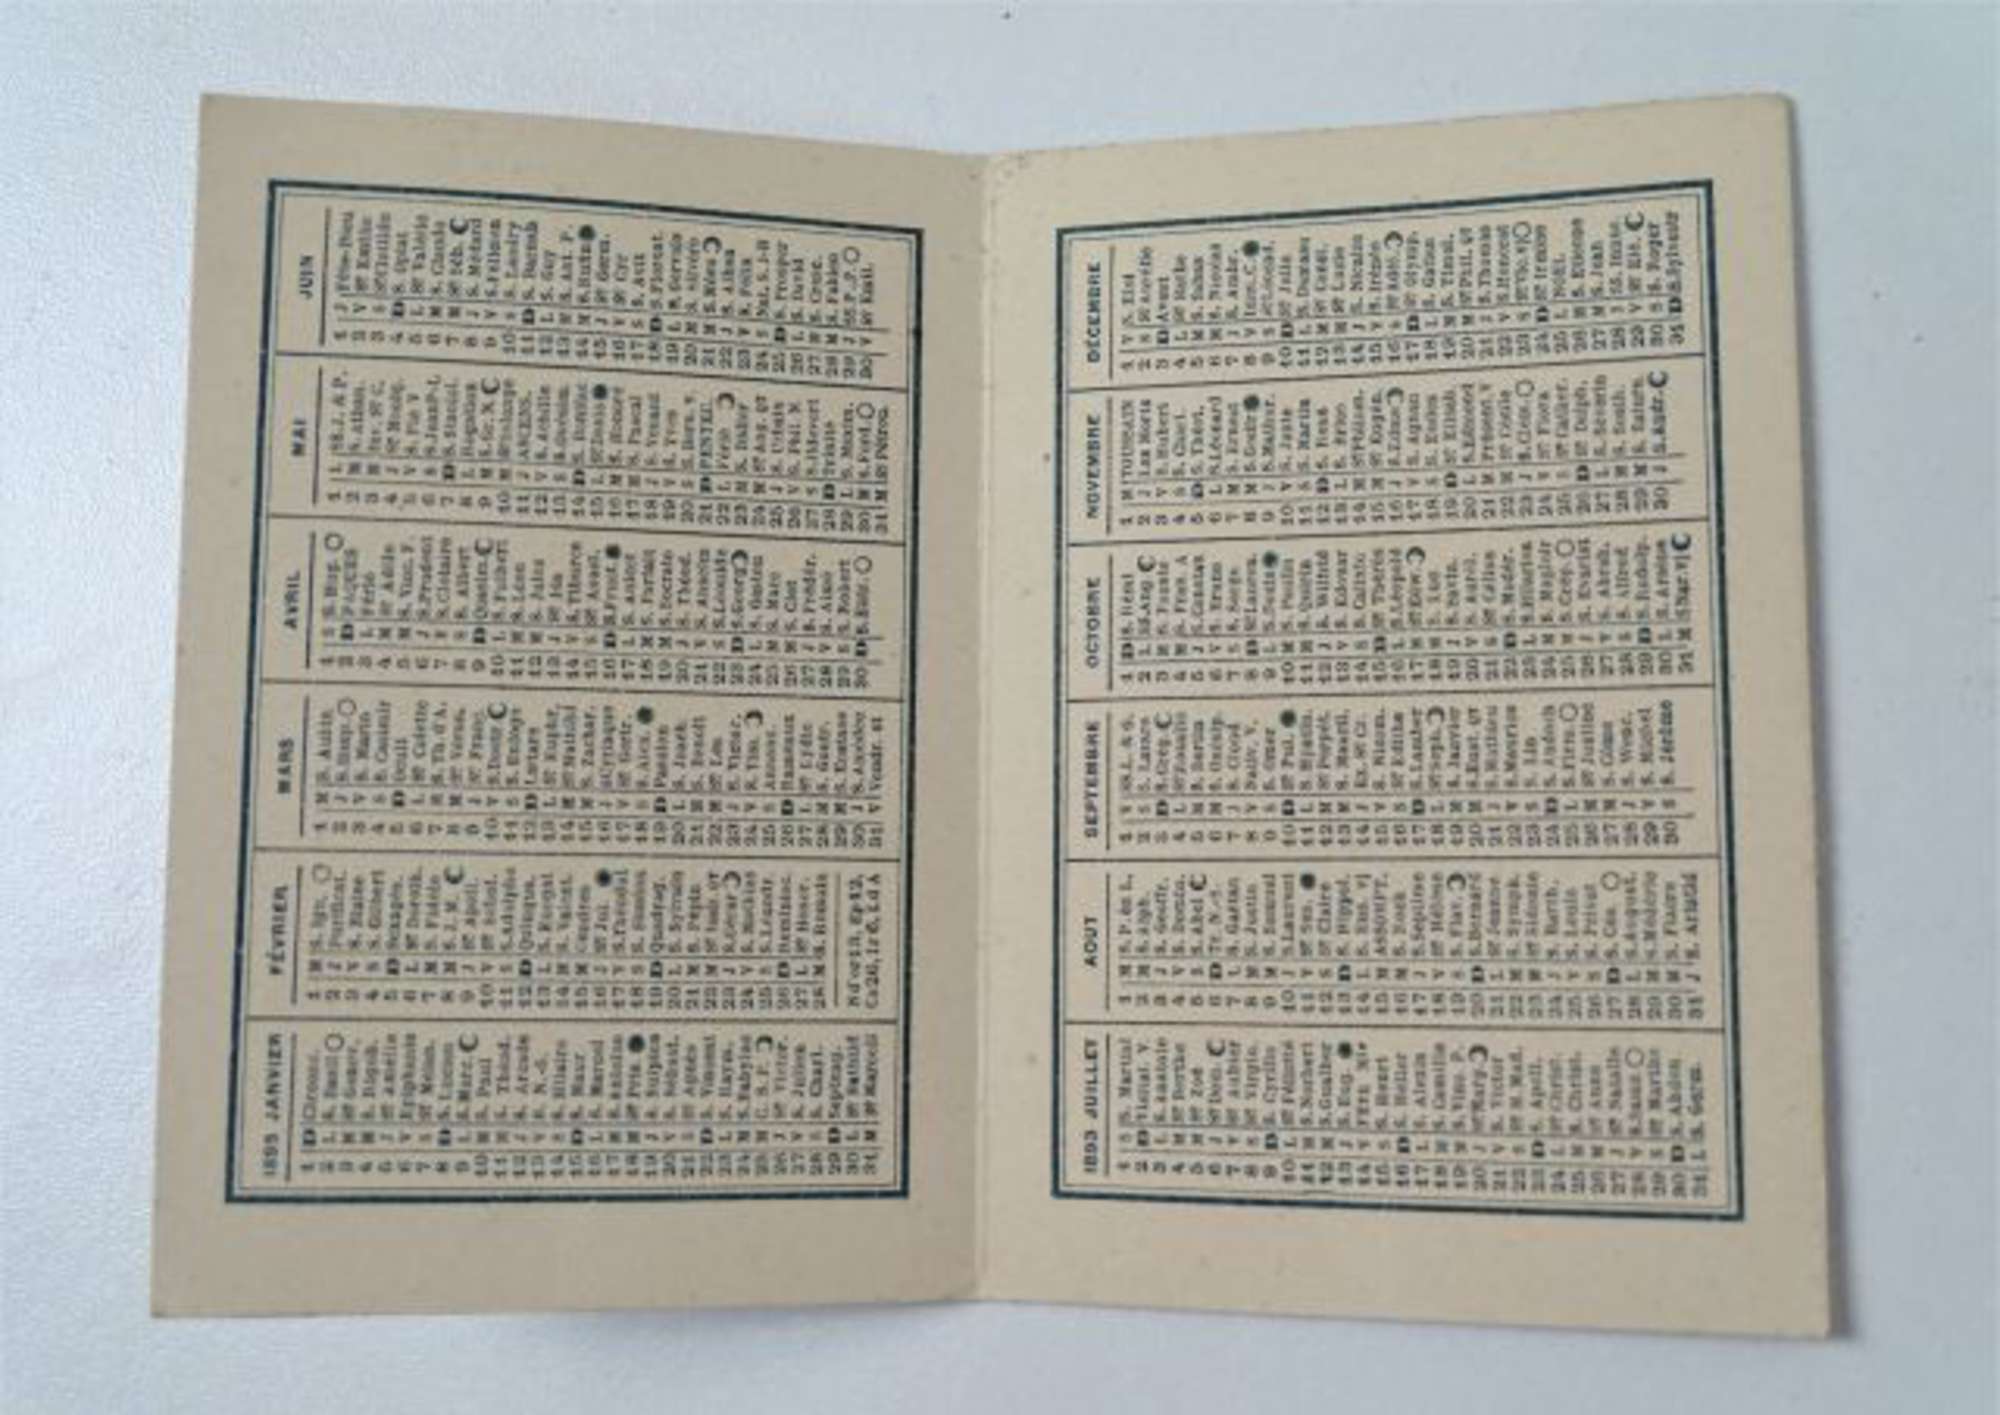 1893 JANVIER
1 D Circonc.
2 L S. Basil
3 M Ste Genev.
4 M S. Rigob.
5 J S. Amélie
6 V Epiphanie
7 S St Melan.
8 D S. Lucien
9 L S. Marc.
10 M S. Paul
11 M S. Théod.
12 J S. Arcade
13 V B. N.-S.
14 S S. Hilaire
15 D S. Maur
16 L S. Marcel
17 M S. Antoine
18 M
19 J S. Sulpice
20 V S. Sébast.
21 S Ste Agnès
22 D S. Vincent
23 L S. Raym.
24 M S. Babylas
25 M C. S. P.
26 J
27 V S. Julien
28 S S. Charl.
29 D Septuag.
30 L Ste Bathild
31 M Ste Marcell
FÉVRIER
1 M S. Ign.
2 J Purificat.
3 V S. Blaise
4 S S. Gilbert
5 D Sexagés.
6 L Ste Doroth.
7 M S. Fidèle
8 M S. J. M.
9 J Ste Apoll.
10 V Ste Schol.
11 S S. Adolphe
12 D Quinqua.
14 M S. Valent.
15 M Cendres
16 J Ste Jul.
17 V S. Théodul
18 S S. Siméon
19 D Quadrag.
21 M S. Pépin
22 M Ste Isab. QT
24 V
25 S S. Léandr.
26 D Reminisc.
27 L Ste Honor.
28 M S. Romain
Nd'or 13, Ep 12,
Cs 26, Ir 6, Ld A
MARS
1 M S. Aubin
2 J S. Simp.
4 S S. Casimir
5 D Oculi
6 L Ste Colette
7 M S. Th. d'A.
9 J Ste Franç.
10 V S. Doct.
11 S S. Euloge
12 D Lætare
14 M Ste Mathild
15 M S. Zachar.
16 J S. Cyriaque
17 V Ste Gertr.
18 S S. Alex
19 D Passion
20 L S. Joach.
21 M S. Benoît
22 M Ste Léa
23 J S. Victor.
25 S Annonc.
26 D Rameaux
27 L Ste Lydie
28 M S. Gontr.
29 M S. Eustase
30 J S. Amédée
31 V Vendr. st
AVRIL
1 S S. Hug.
2 D PAQUES
3 L Férié
4 M Ste Adèle
5 M S. Vinc. F.
6 J S. Prudent
8 S S. Albert
9 D Quasim.
10 L S. Fulbert
11 M S. Léon
12 M S. Jules
13 J Ste Ida
14 V S. Tiburce
15 S Ste Anast.
16 D S. Fruct.
17 L S. Anicet
18 M S. Parfait
19 M S. Socrate
20 J S. Théod.
21 V S. Anselm
22 S S. Léonide
23 D S. Georg.
24 L S. Gaston
25 M S. Marc
26 M S. Clet
27 J S. Frédér.
28 V S. Aimé
29 S S. Robert
30 D S. Eutr.
MAI
1 L SS. J. & P.
2 M S. Athan.
3 M Inv. Ste C.
4 J Ste Moniq.
5 V S. Pie V
6 S S. Jean P.-L.
7 D S. Stanisl.
8 L Rogation
9 M S. Gr. N.
10 M
11 J ASCENS.
12 V S. Achille
13 S S. Onésim.
14 D S. Boniface
15 L Ste Denis
16 M S. Honoré
17 M S. Pascal
18 J S. Venant
19 V S. Yves
20 S S. Bern. v.
21 D PENTEC.
22 L Férié
23 M S. Didier
24 M Ste Ang. QT
25 J S. Urbain
26 V S. Phil. N.
27 S S. Hildevert
28 D Trinité
29 L S. Maxim.
30 M S. Ferd.
31 M Ste Pétron.
JUIN
1 J Fête-Dieu
2 V Ste Emilie
3 S Ste Clotilde
4 D S. Optat
5 L S. Valérie
6 M S. Claude
7 M Ste Séb.
8 J S. Médard
9 V S. Félicien
10 S S. Landry
11 D S. Barnab
12 L S. Guy
13 M S. Ant. P.
14 M S. Rufin
15 J Ste Germ.
16 V St Cyr
17 S S. Avit
18 D S. Florent.
19 L S. Gervais
20 M S. Silvère
21 M S. Méen
22 J S. Alban
23 V S. Félix
24 S Nat. S. J-B
25 D S. Prosper
26 L S. David
27 M S. Cresc.
28 M S. Fabien
29 J SS. P. P.
30 V S. Emil.
1893 JUILLET
1 S S. Martial
2 D Visitat. V.
3 L S. Anatole
4 M Ste Berthe
5 M Ste Zoé
6 J Ste Dom.
7 V Ste Aubier
8 S Ste Virgin.
9 D S. Cyrille
10 L Ste Félicité
11 M S. Norbert
12 M S. Gualber
13 J S. Eug.
14 V FÊTE Nle
15 S S. Henri
16 D S. Hélier
17 L S. Alexis
18 M S. Camille
19 M S. Vinc. P.
20 J Ste Marg.
21 V S. Victor
22 S Ste M. Mad.
23 D S. Apoll.
24 L Ste Christ.
25 M S. Christ.
26 M Ste Anne
27 J Ste Natalie
28 V
29 S Ste Marthe
30 D S. Abdon
31 L S. Germ.
AOUT
1 M S. P. ès L.
2 M S. Alph.
3 J S. Geoffr.
4 V S. Domin.
5 S S. Abel
6 D Tr. N.-S.
7 L S. Gaétan
8 M S. Justin
9 M
10 J S. Laurent
11 V Ste Sus.
12 S Ste Claire
13 D S. Hippol.
14 L S. Eus. vj
15 M ASSOMPT.
16 M S. Roch
18 V Ste Hélène
19 S S. Flav.
20 D S. Bernard
21 L Ste Jeanne
22 M S. Symph.
23 M S. Sidonie
24 J S. Barth.
25 V S. Louis
26 S S. Privat
27 D S. Cés.
28 L S. August.
29 M S. Médéric
30 M S. Fiacre
31 J S. Aristid
SEPTEMBRE
1 V SS. L. & G.
2 S S. Lazare
3 D S. Grég.
4 L Ste Rosalie
5 M S. Bertin
6 M S. Onésip.
7 J S. Cloud
8 V Nativ. V.
9 S S. Omer
10 D Ste Pul.
11 L S. Hyacin.
12 M Ste Perpét.
13 M S. Mauril.
14 J Ex. Ste Cr.
15 V S. Nicom.
16 S Ste Edithe
17 D S. Lambert
18 L Ste Soph.
19 M S. Janvier
20 M S. Eust. QT
21 J S. Mathieu
22 V S. Maurice
23 S S. Lin
24 D S. Andoch
25 L S. Firm.
26 M Ste Justine
27 M S. Côme
28 J S. Vence.
29 V S. Michel
30 S S. Jérôme
OCTOBRE
1 D S. Remi
2 L SS. Ang
3 M S. Fauste
4 M S. Fran. A
5 J S. Constan
6 V S. Bruno
7 S S. Serge
8 D Ste Lauren.
9 L S. Denis
10 M S. Paulin
11 M S. Quirin
12 J S. Wilfrid
13 V S. Edouar
14 S S. Calixte
15 D Ste Thérès
16 L S. Léopold
17 M Ste Edw.
18 M S. Luc
19 J S. Savin.
20 V S. Aurél.
21 S Ste Céline
22 D S. Moder.
23 L S. Hilarion
24 M S. Magloir
25 M S. Crép.
26 J S. Evarist
27 V S. Abrah.
28 S S. Alfred
29 D S. Rodolp.
30 L S. Arsène
31 M S. Nar. vj
NOVEMBRE
1 M TOUSSAIN
2 J Les Morts
3 V S. Hubert
4 S S. Charl.
5 D S. Théot.
6 L S. Léonard
7 M S. Ernest
8 M S. Godfr.
9 J S. Mathur.
10 V S. Juste
11 S S. Martin
12 D S. René
13 L S. Brice
14 M Ste Philom.
15 M Ste Eugén.
16 J S. Edme
17 V S. Agnan
18 S S. Eudes
19 D Ste Elisab.
20 L S. Edmond
21 M Présent. V
22 M Ste Cécile
23 J S. Clém.
24 V Ste Flora
25 S Ste Cather.
26 D Ste Delph.
27 L S. Séverin
28 M S. Sosth.
29 M S. Saturn.
30 J S. Andr.
DÉCEMBRE
1 V S. Eloi
2 S Ste Aurélie
3 D Avent
4 L Ste Barbe
5 M S. Sabas
6 M S. Nicolas
7 J S. Ambr.
8 V Imm. C.
9 S Ste Léocad.
10 D Ste Julie
11 L S. Damase
12 M Ste Const.
13 M Ste Lucie
14 J S. Nicaise
15 V S. Irénée
16 S Ste Adél.
17 D Ste Olymp.
18 L S. Gatien
19 M S. Timol.
20 M Ste Phil. QT
21 J S. Thomas
22 V S. Honorat
23 S Ste Vic. vj
24 D Ste Irmine
25 L NOEL
26 M S. Etienne
27 M S. Jean
28 J SS. Innoc.
29 V Ste Elé.
30 S S. Roger
31 D S. Sylvestr